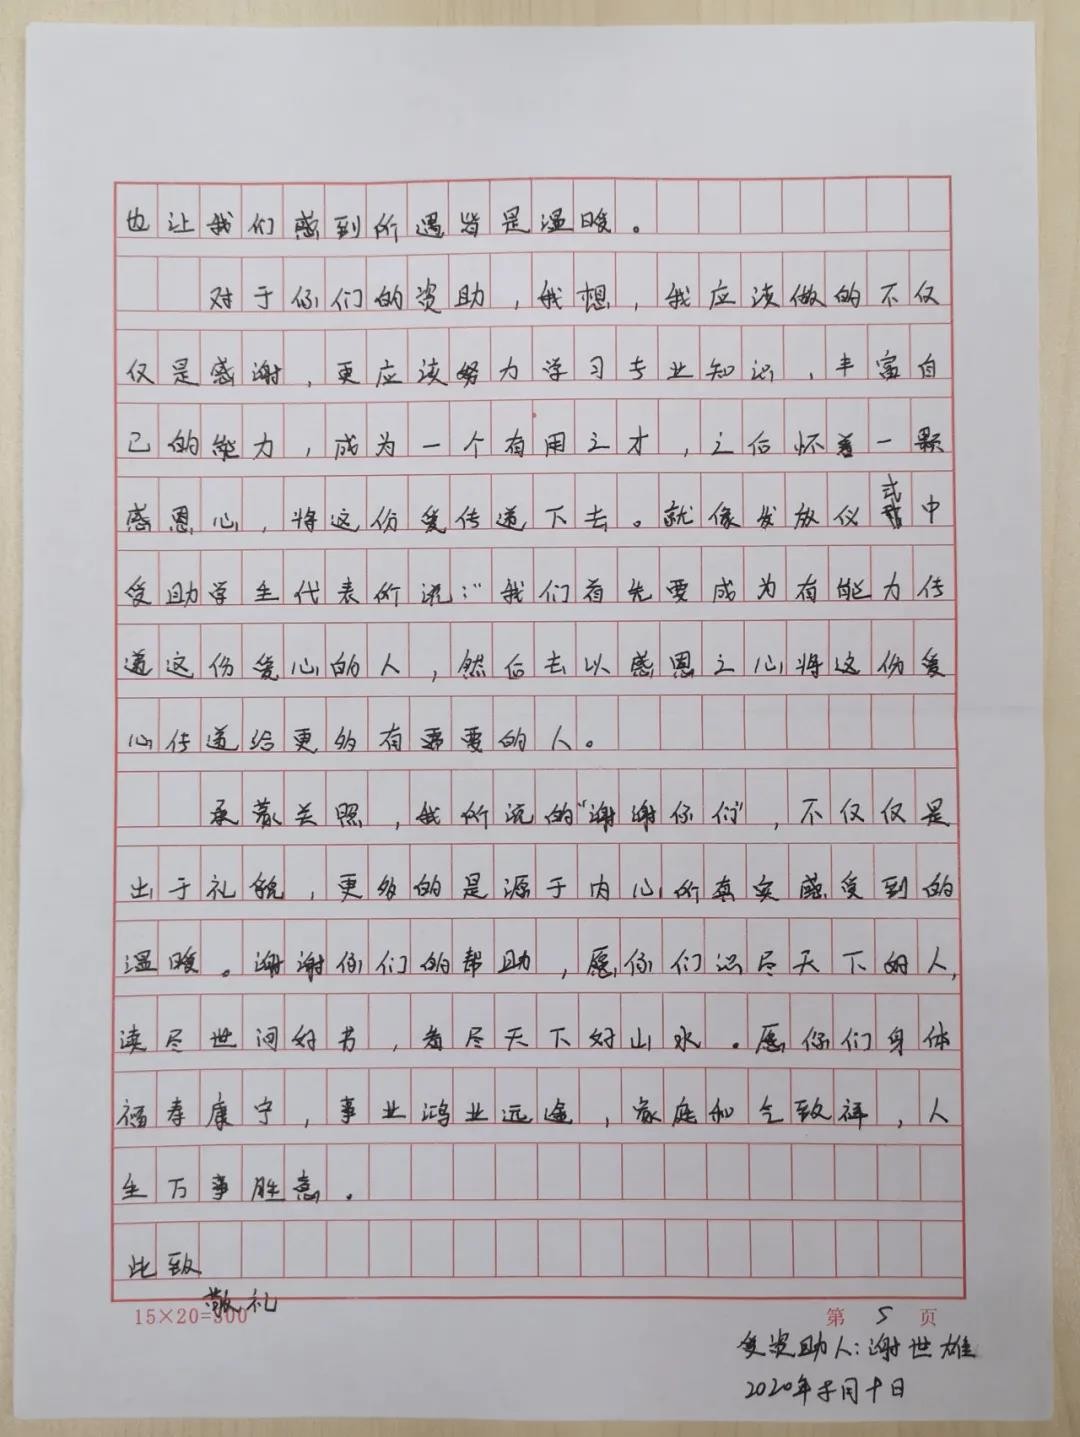 也让我们感到所遇皆是温暖。
对于你们的资助，我想，我应该做的不仅
仅是感谢，更应该努力学习专业知识，丰富自
己的能力，成为一个有用之才，之后怀着一颗
感恩心，将这份爱传递下去。就像发放仪式中
受助学生代表所说：“我们首先要成为有能力传
递这份爱心的人，然后去以感恩之心将这份爱
心传递给更多有需要的人。
承蒙关照，我所说的“谢谢你们”，不仅仅是
出于礼貌，更多的是源于内心所真实感受到的
温暖。谢谢你们的帮助，愿你们识尽天下好人，
读尽世间好书，看尽天下好山水。愿你们身体
福寿康宁，事业鸿业远途，家庭和气致祥，人
生万事胜意。
此致
敬礼
15×20=300 第 5 页
受资助人：谢世雄
2020年 月十日